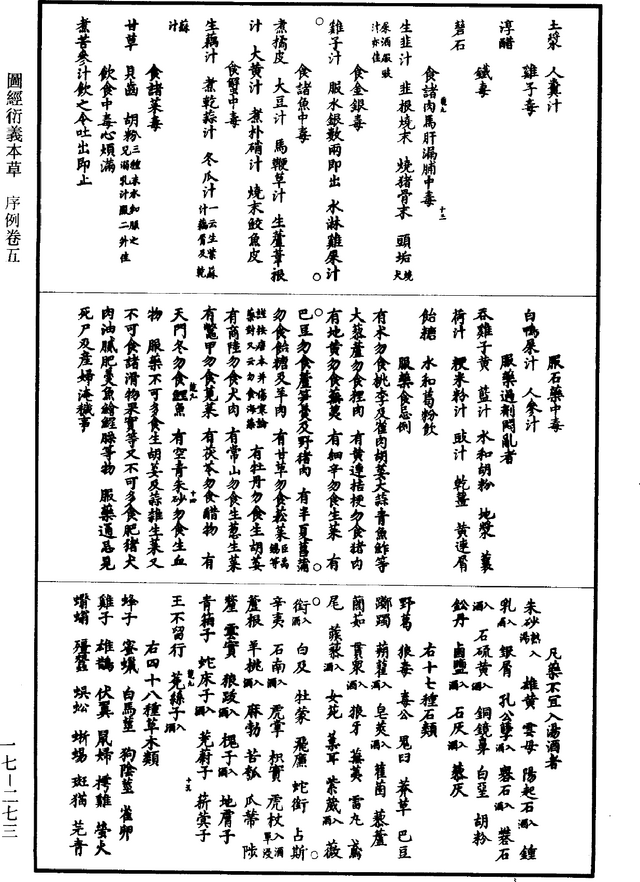 土漿 人糞汁
雞子毒
淳醋
鐵毒
礠石
食諸肉馬肝漏脯中毒
生韭汁 韭根燒末 燒猪骨末 頭垢燒
犬屎酒服豉汁亦佳
食金銀毒
雞子汁 服水銀數兩即出 水淋雞屎汁
食諸魚中毒
煮橘皮 大豆汁 馬鞭草汁 生蘆葦根
汁 大黃汁 煮朴硝汁 燒末鮫魚皮
食蟹中毒
生藕汁 煮乾蒜汁 冬瓜汁一云生紫蘇汁藕屑及乾
蘇汁
食諸菜毒
甘草 貝齒 胡粉三種末水和服之又溺乳汁服二升佳
飲食中毒心煩滿
煮苦參汁飲之令吐出即止
服石藥中毒
白鴨屎汁 人參汁
服藥過劑悶亂者
吞雞子黃 藍汁 水和胡粉 地漿 蘘
荷汁 粳米粉汁 豉汁 乾薑 黃連屑
飴糖 水和葛粉飲
服藥食忌例
有朮勿食桃李及雀肉胡荽大蒜青魚鮓等
有藜蘆勿食狸肉 有黃連桔梗勿食猪肉
有地黃勿食蕪荑 有細辛勿食生菜 有
巴豆勿食蘆笋羹及野猪肉 有半夏菖蒲
勿食飴糖及羊肉 有甘草勿食菘菜
有牡丹勿食生胡荽
有商陸勿食犬肉 有常山勿食生葱生菜
有鱉甲勿食莧菜 有茯苓勿食醋物 有
天門冬勿食鯉魚 有空青朱砂勿食生血
物 服藥不可多食生胡荽及蒜雜生菜又
不可食諸滑物果實等又不可多食肥猪犬
肉油膩肥羹魚鱠腥臊等物 服藥通忌見
死尸及產婦淹穢事
凡藥不宜入湯酒者
朱砂熟入湯 雄黃 雲母 陽起石入酒 鍾
乳入酒 銀屑 孔公孽入酒 礜石入酒 礬石
入酒 石硫黃入酒 銅鏡鼻 白堊 胡粉
鉛丹 鹵鹽入酒 石灰入酒 藜灰
右十七種石類
野葛 狼毒 毒公 鬼臼 莽草 巴豆
躑躅 蒴藋入酒 皂莢入酒 雚菌 藜蘆
䕡茹 貫衆入酒 狼牙 蕪荑 雷丸 鳶
尾 蒺藜入酒 女菀 葈耳 紫葳入酒 薇
銜入酒 白及 牡蒙 飛廉 蛇銜 占斯
辛夷 石南入酒 虎掌 枳實 虎杖入酒單浸
蘆根 羊桃入酒 麻勃 苦瓠 瓜蒂 陟
釐 雲實 狼跋入酒 槐子入酒 地膚子
青葙子 蛇床子入酒 茺蔚子 菥蓂子
王不留行 菟絲子入酒
右四十八種草木類
蜂子 蜜蠟 白馬莖 狗陰莖 雀卵
雞子 雄鵲 伏翼 鼠婦 樗雞 螢火
蠮螉 殭蠶 蜈蚣 蜥蜴 斑猫 芫青
圖經衍義本草 序例卷五
一七—二七三